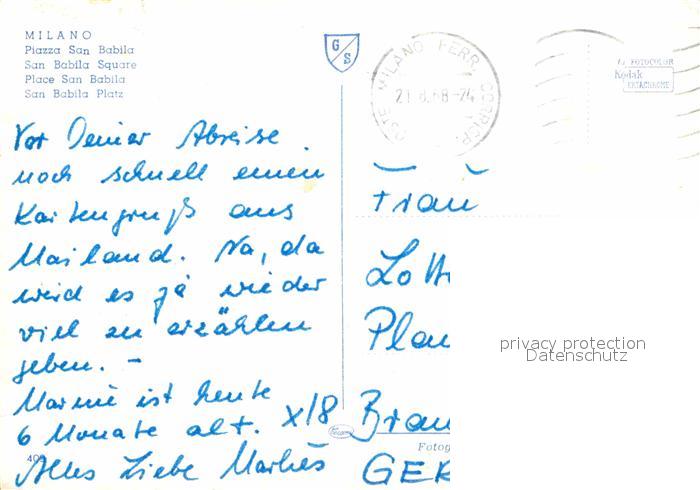 MILANO
Piazza San Babila
San Babila Square
Place San Babila
San Babila Platz
G S
MILANO FERR. CORRISP.
21.8.68-24
FOTOCOLOR
Kodak
EKTACHROME
Vor Deiner Abreise
noch schnell einen
Kartengruß aus
Mailand. Na, da
wird es ja wieder
viel zu erzählen
geben. –
ist heute
6 Monate alt. X/8
Alles Liebe
Frau
Lott
Plau
Brau
GER
Fotog
privacy protection
Datenschutz